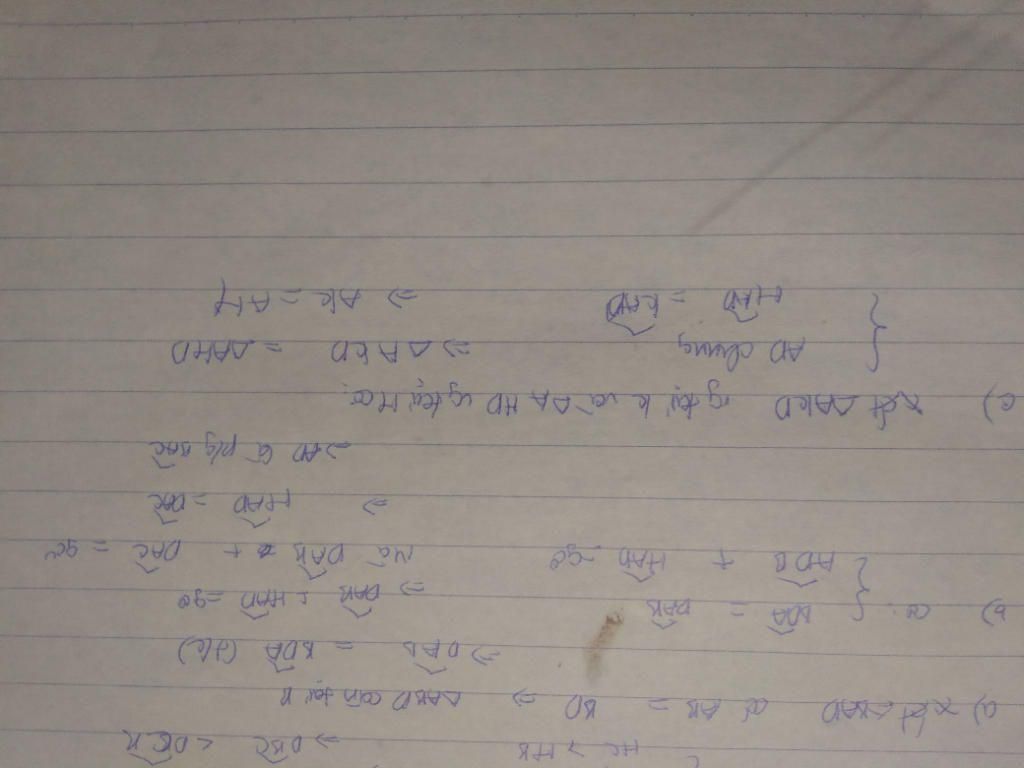 HC > HB ⇒ DBC < DCB
a) xét △BAD có AB = BD ⇒ △ABD cân tại B
⇒ DAB = BDA (t/c)
b) có: { BDA = DAB ⇒ DAB + HAD = 90
ADB + HAD = 90 Mà DAB + DAC = 90
⇒ HAD = DAC
⇒ AD là p/g HAC
c) xét △AKD vg tại K và △AHD vg tại H có:
{ AD chung ⇒ △AKD = △AHD
HAD = KAD ⇒ AK = AH